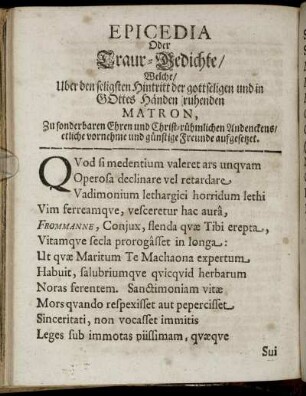 EPICEDIA
Oder
Traur-Gedichte/
Welche/
Uber den seligsten Hintritt der gottseligen und in
GOttes Händen ruhenden
MATRON,
Zu sonderbaren Ehren und Christ-rühmlichen Andenckens/
etliche vornehme und günstige Freunde aufgesetzet.
QVod si medentium valeret ars unqvam
Operosa declinare vel retardare
Vadimonium lethargici horridum lethi
Vim ferreamqve, vesceretur hac aurâ,
FROMMANNE, Conjux, flenda qvæ Tibi erepta,
Vitamqve secla prorogâsset in longa:
Ut qvæ Maritum Te Machaona expertum
Habuit, salubriumqve qvicqvid herbarum
Noras ferentem. Sanctimoniam vitæ
Mors qvando respexisset aut pepercisset
Sinceritati, non vocasset immitis
Leges sub immotas piissimam, qvæqve
Sui